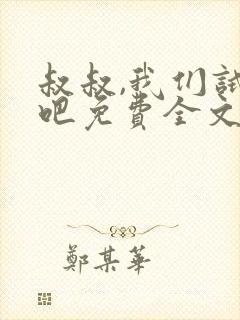 叔叔,我们试
吧免费全文
鄭某華